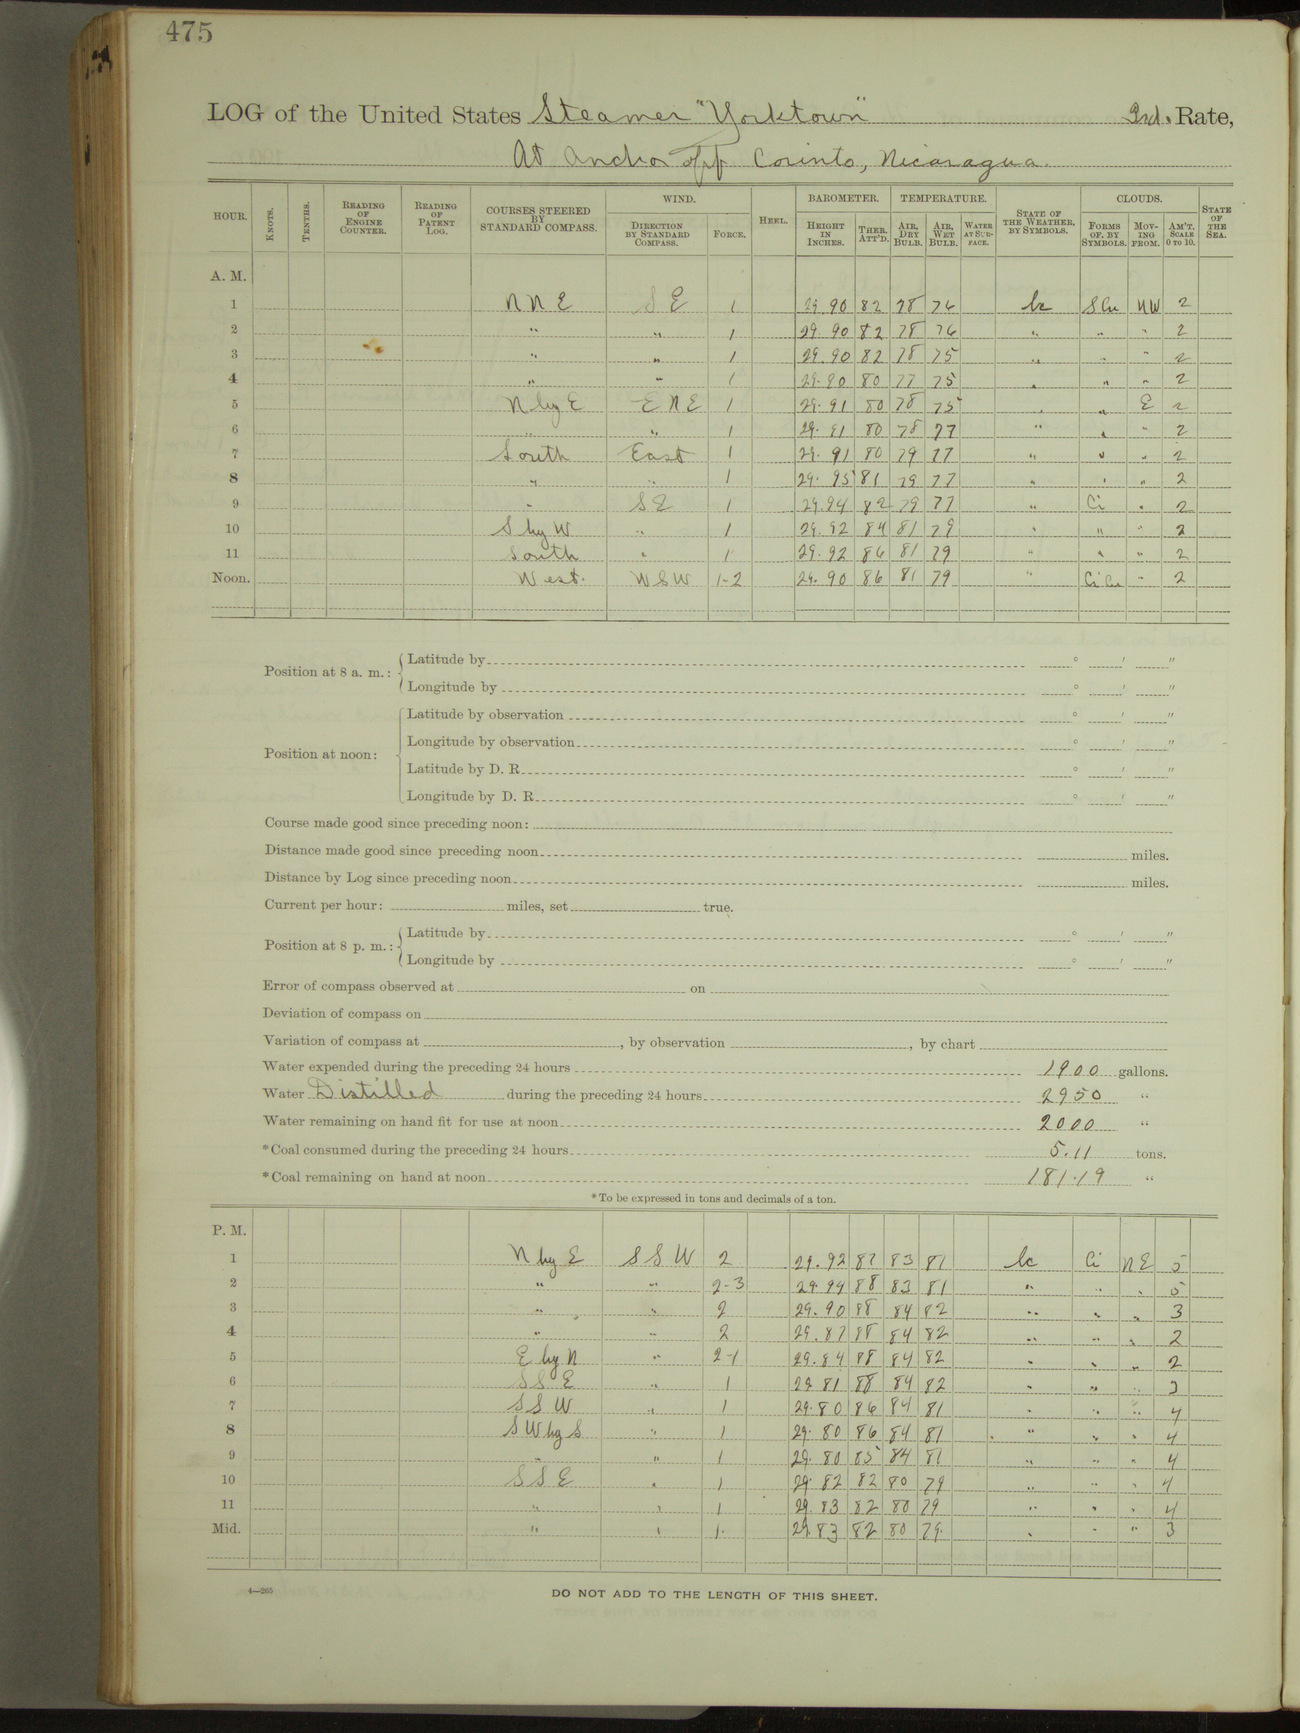 475
LOG of the United States Steamer "Yorktown" 3rd. Rate,
At anchor off Corinto, Nicaragua.
HOUR. KNOTS. TENTHS. READING OF ENGINE COUNTER. READING OF PATENT LOG. COURSES STEERED BY STANDARD COMPASS. WIND. DIRECTION BY STANDARD COMPASS. FORCE. HEEL. BAROMETER. HEIGHT IN INCHES. THER. ATT'D. TEMPERATURE. AIR, DRY BULB. AIR, WET BULB. WATER AT SURFACE. STATE OF THE WEATHER, BY SYMBOLS. CLOUDS. FORMS OF, BY SYMBOLS. MOVING FROM. AM'T, SCALE 0 TO 10. STATE OF THE SEA.
A. M.
1 N N E S E 1 29.90 82 78 76 bc S Cu NW 2
2 " " 1 29.90 82 78 76 " " " 2
3 " " 1 29.90 82 78 75 " " " 2
4 " " 1 29.90 80 77 75 " " " 2
5 N by E E N E 1 29.91 80 78 75 " " E 2
6 " " 1 29.91 80 78 77 " " " 2
7 South East 1 29.91 80 79 77 " " " 2
8 " " 1 29.95 81 79 77 " " " 2
9 " S E 1 29.94 82 79 77 " Ci " 2
10 S by W " 1 29.92 84 81 79 " " " 2
11 South " 1 29.92 86 81 79 " " " 2
Noon. West. W S W 1-2 29.90 86 81 79 " Ci Cu " 2
Position at 8 a. m.: Latitude by ° ' "
Longitude by ° ' "
Position at noon: Latitude by observation ° ' "
Longitude by observation ° ' "
Latitude by D. R. ° ' "
Longitude by D. R. ° ' "
Course made good since preceding noon:
Distance made good since preceding noon miles.
Distance by Log since preceding noon miles.
Current per hour: miles, set true.
Position at 8 p. m.: Latitude by ° ' "
Longitude by ° ' "
Error of compass observed at on
Deviation of compass on
Variation of compass at , by observation , by chart
Water expended during the preceding 24 hours 1900 gallons.
Water Distilled during the preceding 24 hours 2950 "
Water remaining on hand fit for use at noon 2000 "
*Coal consumed during the preceding 24 hours 5.11 tons.
*Coal remaining on hand at noon 181.19 "
*To be expressed in tons and decimals of a ton.
P. M.
1 N by E S S W 2 29.92 87 83 81 bc Ci N E 5
2 " " 2-3 29.94 88 83 81 " " " 5
3 " " 2 29.90 88 84 82 " " " 3
4 " " 2 29.87 88 84 82 " " " 2
5 E by N " 2-1 29.84 88 84 82 " " " 2
6 S S E " 1 29.81 88 84 82 " " "
7 S S W " 1 29.80 86 84 81 " " " 4
8 S W by S " 1 29.80 86 84 81 " " " 4
9 " " 1 29.80 85 84 81 " " " 4
10 S S E " 1 29.82 82 80 79 " " " 4
11 " " 1 29.83 82 80 79 " " " 4
Mid. " " 1. 29.83 82 80 79. " " " 3
4—265
DO NOT ADD TO THE LENGTH OF THIS SHEET.